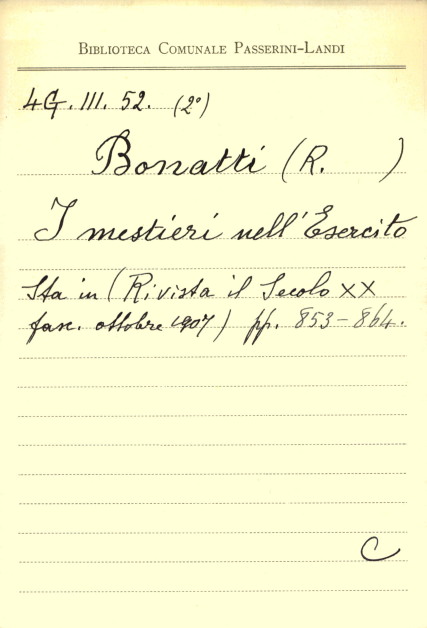 Biblioteca Comunale Passerini-Landi
4G. III. 52. (2º)
Bonatti (R. )
I mestieri nell'Esercito
Sta in (Rivista il Secolo XX
fasc. ottobre 1907) pp. 853-864.
C